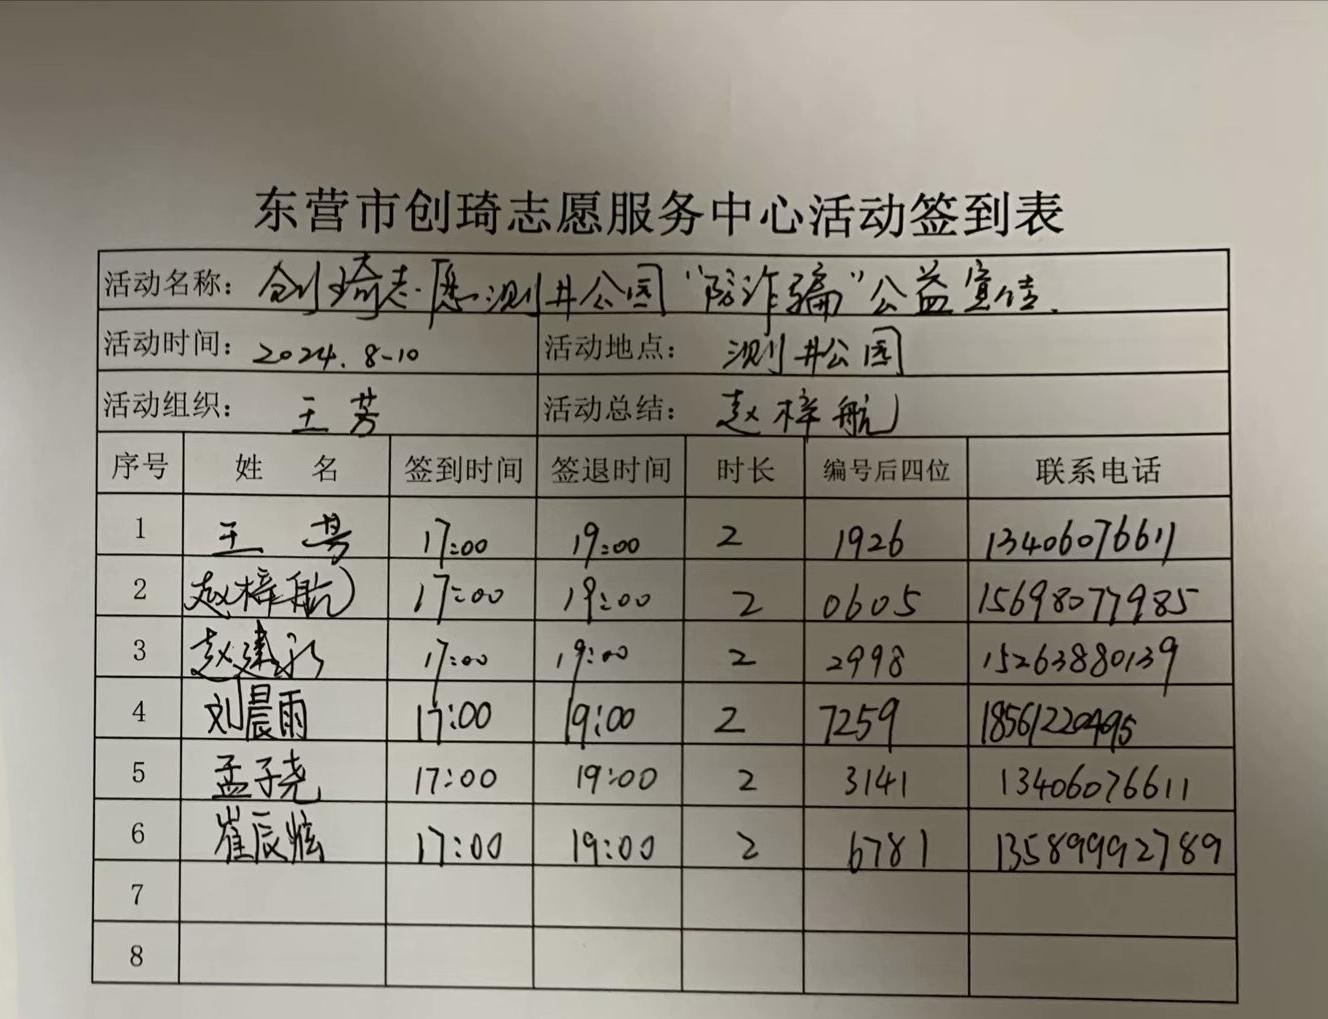 东营市创琦志愿服务中心活动签到表
活动名称：创琦志愿测井公园“防诈骗”公益宣传.
活动时间：2024.8-10 活动地点：测井公园
活动组织：王芳 活动总结：赵梓航
序号 姓名 签到时间 签退时间 时长 编号后四位 联系电话
1 王芳 17:00 19:00 2 1926 13406076611
2 赵梓航 17:00 19:00 2 0605 15698077985
3 赵建永 17:00 19:00 2 2998 15263880139
4 刘晨雨 17:00 19:00 2 7259 18561220495
5 孟子尧 17:00 19:00 2 3141 13406076611
6 崔辰炫 17:00 19:00 2 6781 13589992789
7
8